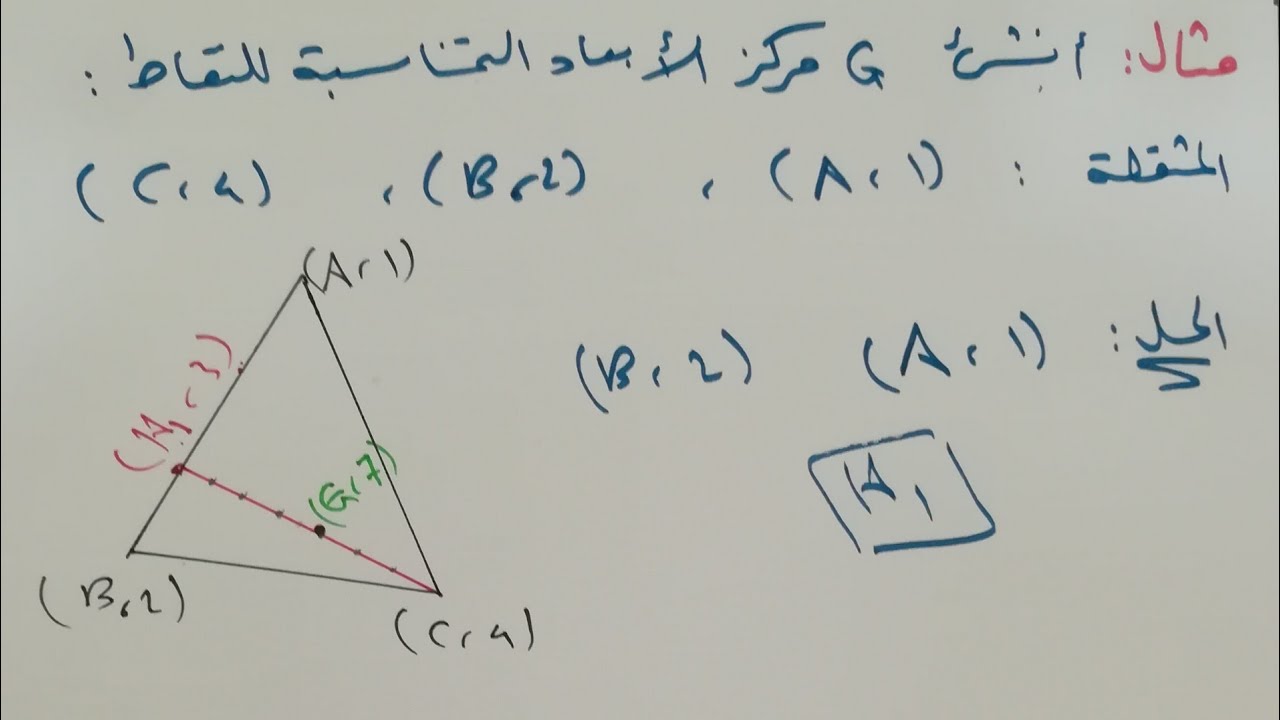 مثال: أنشئ G مركز الأبعاد المتناسبة للنقاط:
المثقلة : (A, 1) , (B, 2) , (C, 4)
الحل: (A, 1) (B, 2)
A₁
(A, 1)
(A₁, 3)
(G, 7)
(B, 2)
(C, 4)